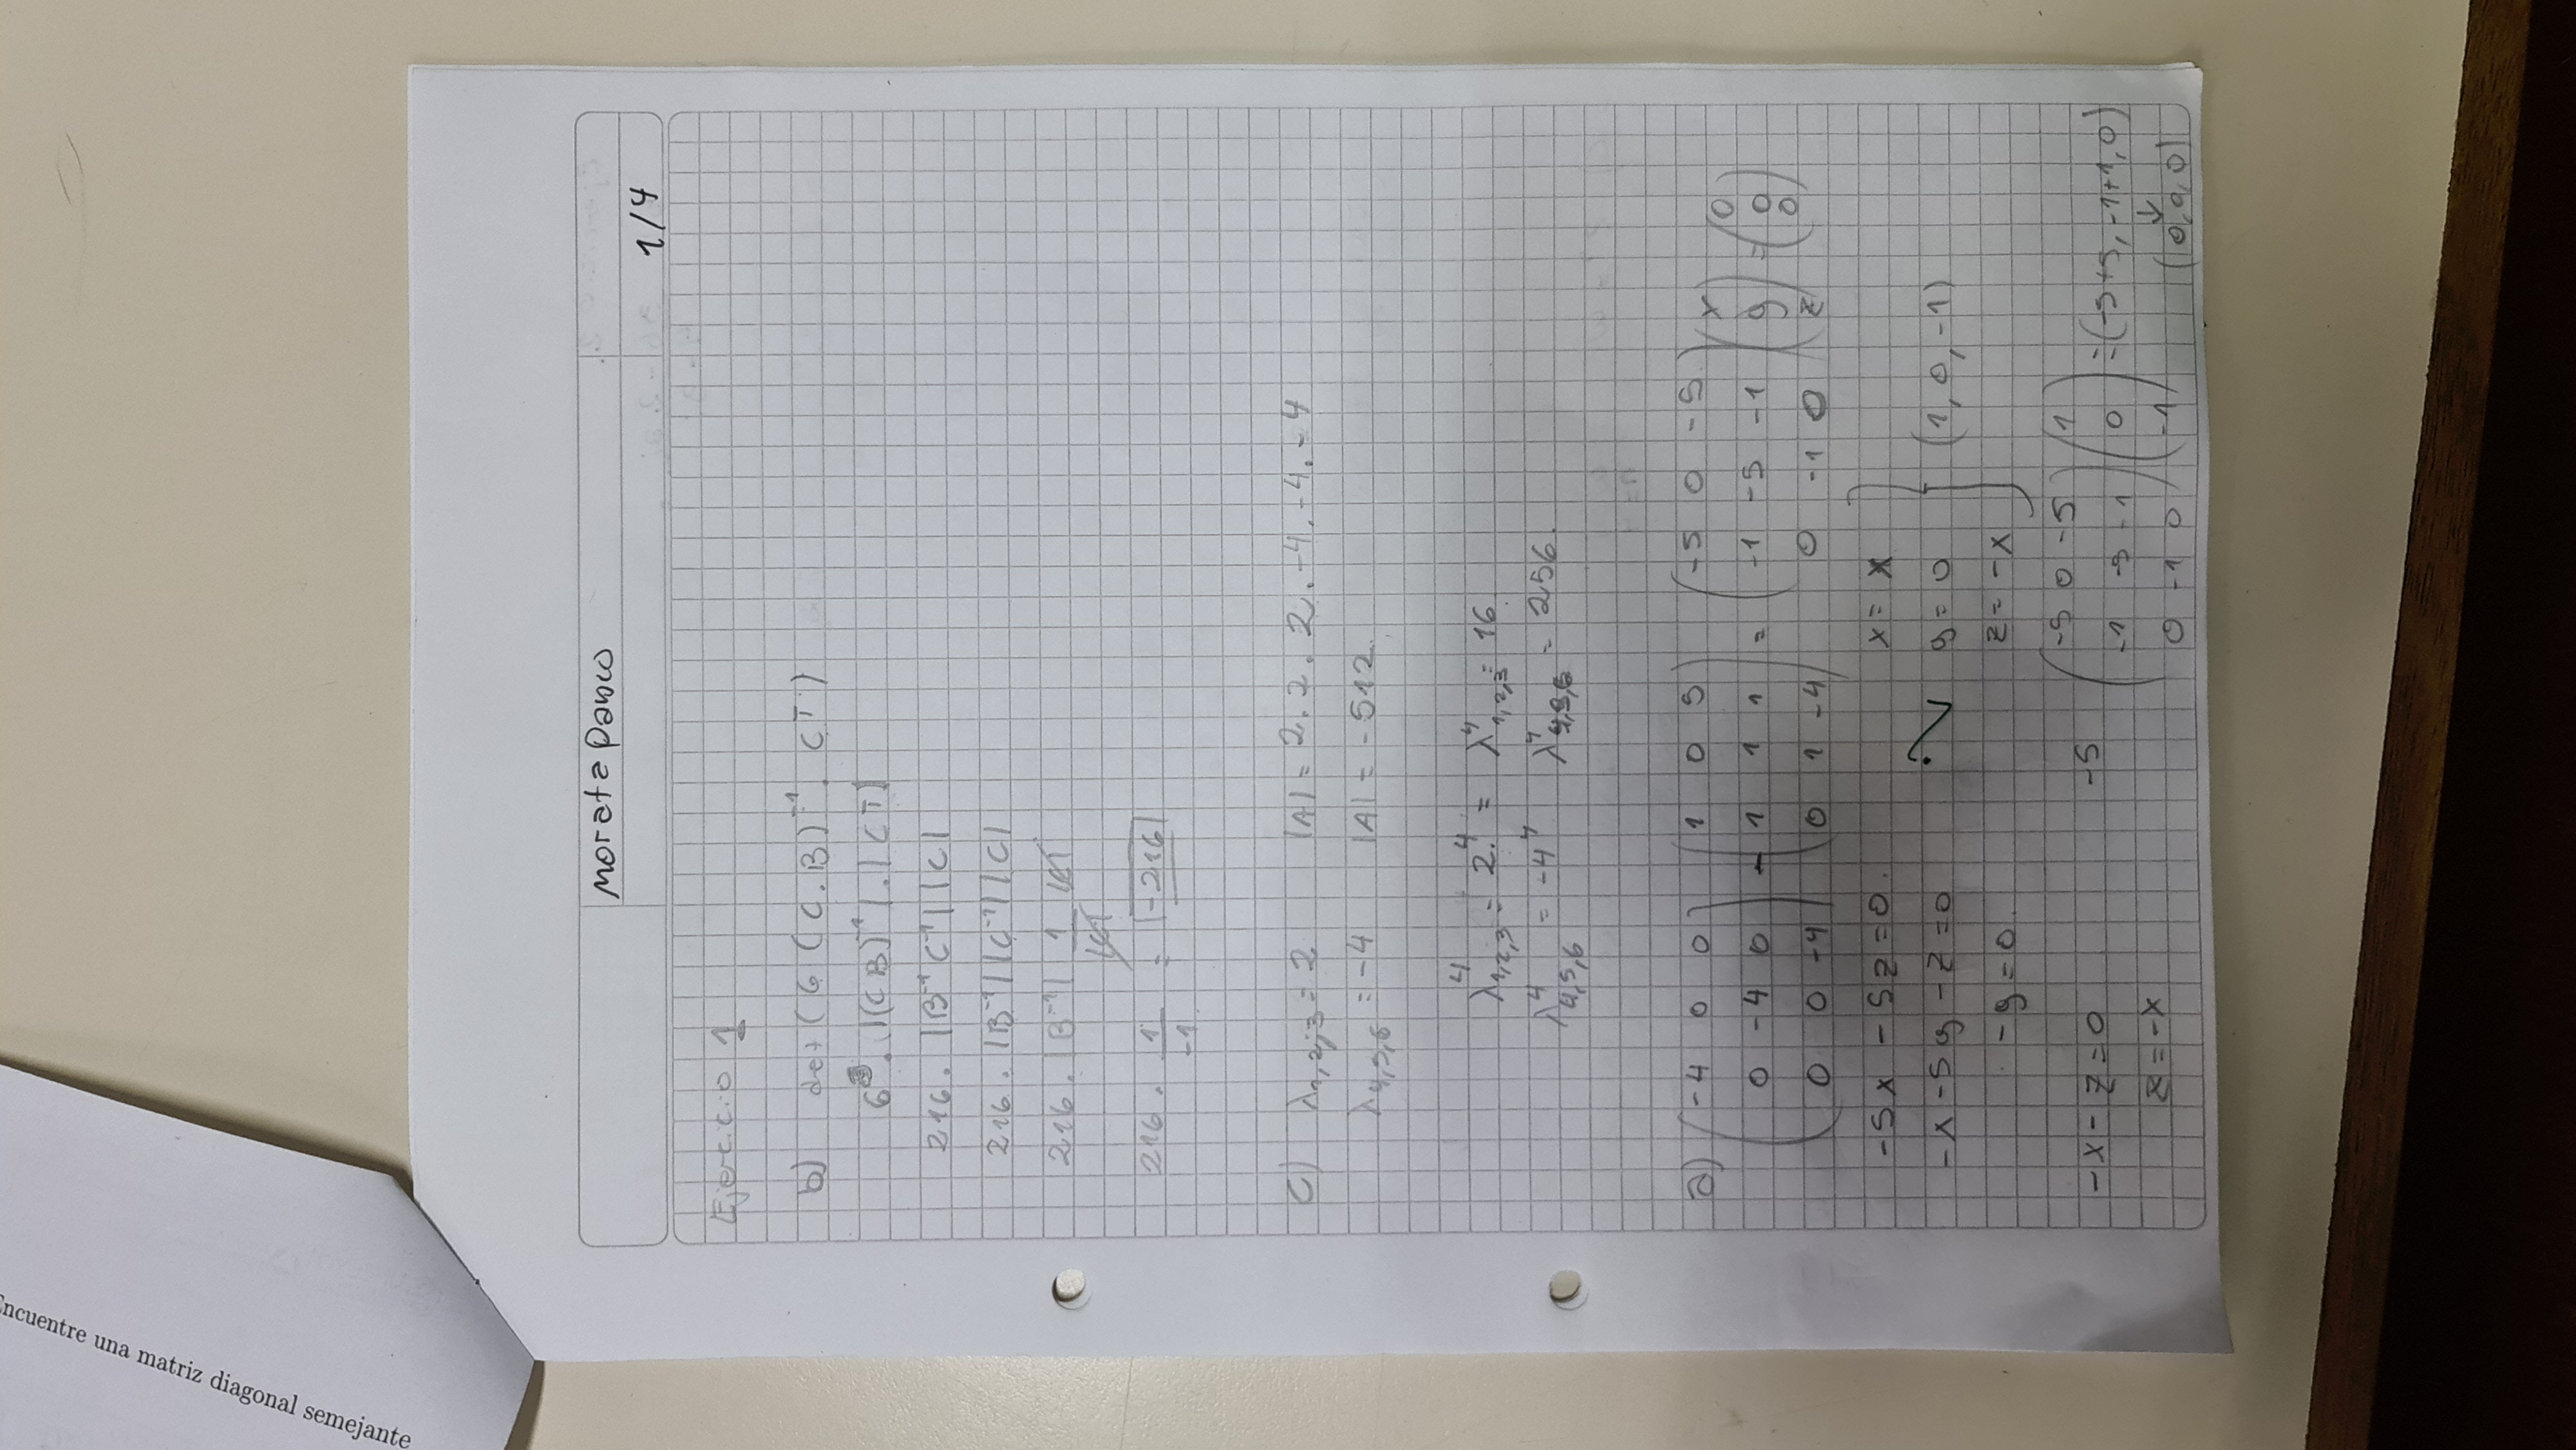 Encuentre una matriz diagonal semejante
Morata Pablo
1/4
Ejercicio 1
b) det(6(C.B)⁻¹.Cᵀ)
6³.|(CB)⁻¹|.|Cᵀ|
216.|B⁻¹C⁻¹||C|
216.|B⁻¹||C⁻¹||C|
216.|B⁻¹| 1/|C| |C|
216. 1/-1 = -216
c) λ₁,₂,₃ = 2 |A| = 2.2.2.-4.-4.-4
λ₄,₅,₆ = -4 |A| = -512.
λ⁴₁,₂,₃ = 2.⁴ = λ⁴₁,₂,₃ = 16
λ⁴₄,₅,₆ = -4⁴ λ⁴₄,₅,₆ = 256.
a) (-4 0 0) (1 0 5) (-5 0 -5) (x) (0)
(0 -4 0) - (1 1 1) = (-1 -5 -1) (y) = (0)
(0 0 -4) (0 1 -4) (0 -1 0) (z) (0)
-5x - 5z = 0. x = x
-x - 5y - z = 0 y = 0 } (1, 0, -1)
-y = 0. z = -x
-x - z = 0
z = -x
-5 (-5 0 -5) (1)
(-1 -5 -1) (0) = (-5+5, -1+1, 0)
(0 -1 0) (-1) ↓ (0, 0, 0)